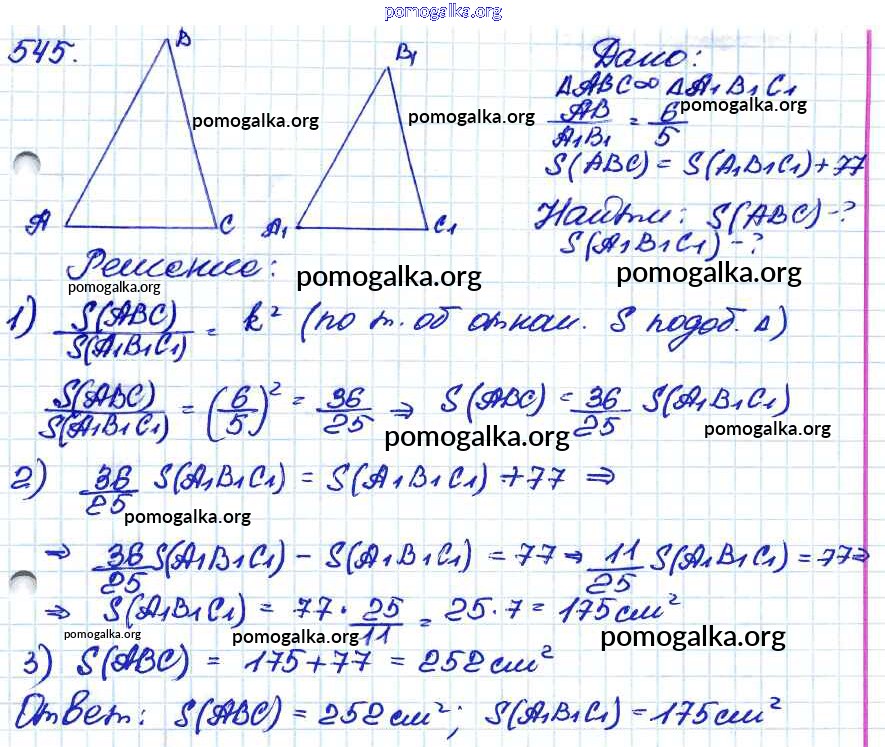 pomogalka.org
545.
B
B₁
pomogalka.org
pomogalka.org
A
C
A₁
C₁
Дано:
△ABC ∞ △A₁B₁C₁
AB/A₁B₁ = 6/5
pomogalka.org
S(ABC) = S(A₁B₁C₁)+77
Найти: S(ABC) -?
S(A₁B₁C₁) -?
Решение:
pomogalka.org
pomogalka.org
pomogalka.org
1) S(ABC)/S(A₁B₁C₁) = k² (по т. об отнош. S подоб. △)
S(ABC)/S(A₁B₁C₁) = (6/5)² = 36/25 ⇒ S(ABC) = 36/25 S(A₁B₁C₁)
pomogalka.org
pomogalka.org
2) 36/25 S(A₁B₁C₁) = S(A₁B₁C₁) +77 ⇒
pomogalka.org
⇒ 36/25 S(A₁B₁C₁) - S(A₁B₁C₁) = 77 ⇒ 11/25 S(A₁B₁C₁) = 77 ⇒
⇒ S(A₁B₁C₁) = 77 · 25/11 = 25·7 = 175 см²
pomogalka.org
pomogalka.org
pomogalka.org
3) S(ABC) = 175+77 = 252 см²
Ответ: S(ABC) = 252 см²; S(A₁B₁C₁) = 175 см²